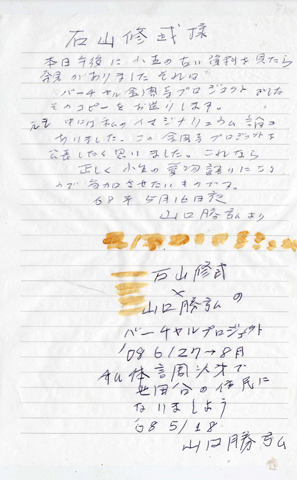 石山修武様
本日午後に小生の古い資料を見たら
発見がありました それは
バーチャル金閣寺プロジェクトでした
そのコピーをお送りします。
元を 中には私のイマジナリュウム論が
ありました。この金閣寺プロジェクトを
公表したく思いました。これなら
正しく小生の夢物語りになる
ので参加させたいものです。
08年5月16日夜
山口勝弘より
石山修武
×
山口勝弘の
バーチャルプロジェクト
'08 6/27→8月
私体調次第で
世田谷の住民に
なりましよう
'08 5/18
山口勝弘